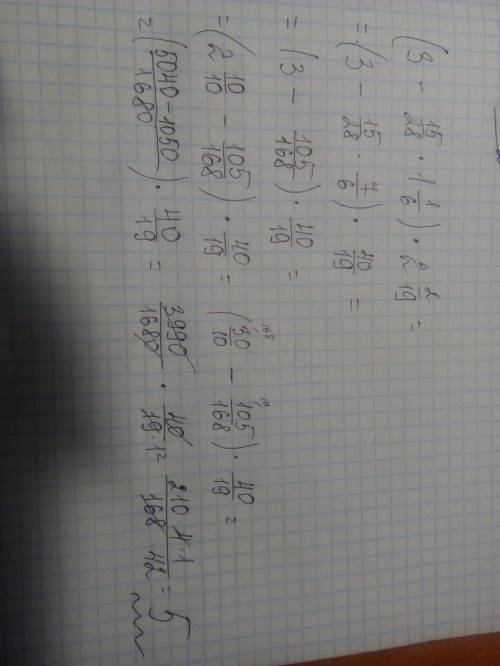 (3 - 15/28 · 1 1/6) · 2 2/19 =
= (3 - 15/28 · 7/6) · 40/19 =
= (3 - 105/168) · 40/19 =
= (2 10/10 - 105/168) · 40/19 = (30/10 168 - 105/168 10) · 40/19 =
= (5040-1050/1680) · 40/19 = 3990/1680 · 40/19·1 = 210·4·1/168 42 = 5